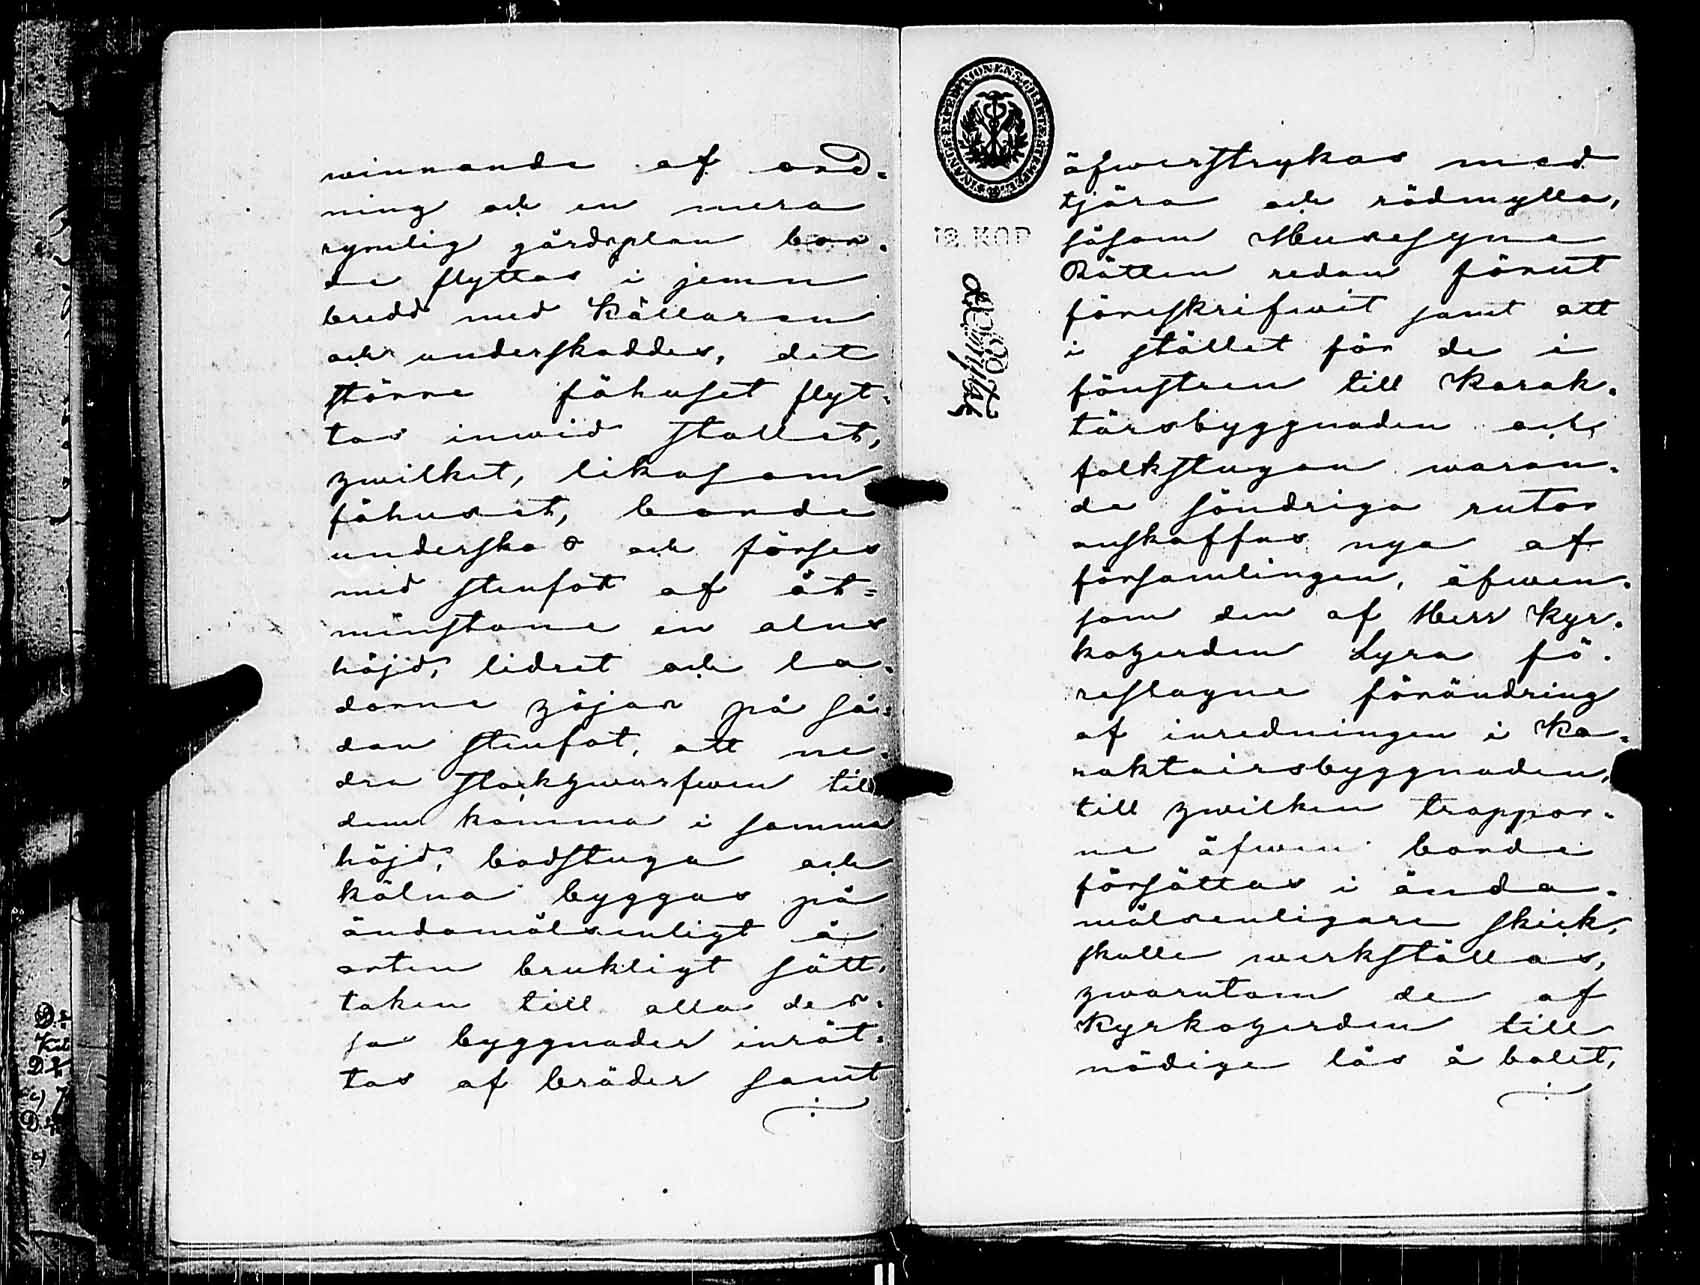 winnande af ord-
ning och en mera
rymlig gårdsplan bor-
de flyttas i jemn
bredd med källaren
och underskoddes, det
större fähuset flyt-
tas inwid stallet,
hwilket, likasom
fähuset, borde
underskos och förses
med stenfot af åt-
minstone en alns
höjd, lidret och la-
dorne höjas på så-
dan stenfot, att ne-
dra stockhwarfwen till
dem komma i samma
höjd, badstuga och
kölna byggas på
ändamålsenligt å
orten brukligt sätt,
taken till alla des-
sa byggnader inrät-
tas af bräder samt
12. KOP
öfwerstrykas med
tjära och rödmylla,
såsom Husesyne
Rätten redan förut
föreskrifwit samt att
i stället för de i
fönstren till Karak-
tärsbyggnaden och
folkstugan waran-
de söndriga rutor
anskaffas nya af
församlingen, äfwen-
som den af Herr Kyr-
koherden Lyra fö-
reslagne förändring
af inredningen i Ka-
raktairsbyggnaden,
till hwilken trappor-
ne äfwen borde
försättas i ända-
målsenligare skick,
skulle werkställas,
hwarutom de af
Kyrkoherden till
nödige lås å bolet,